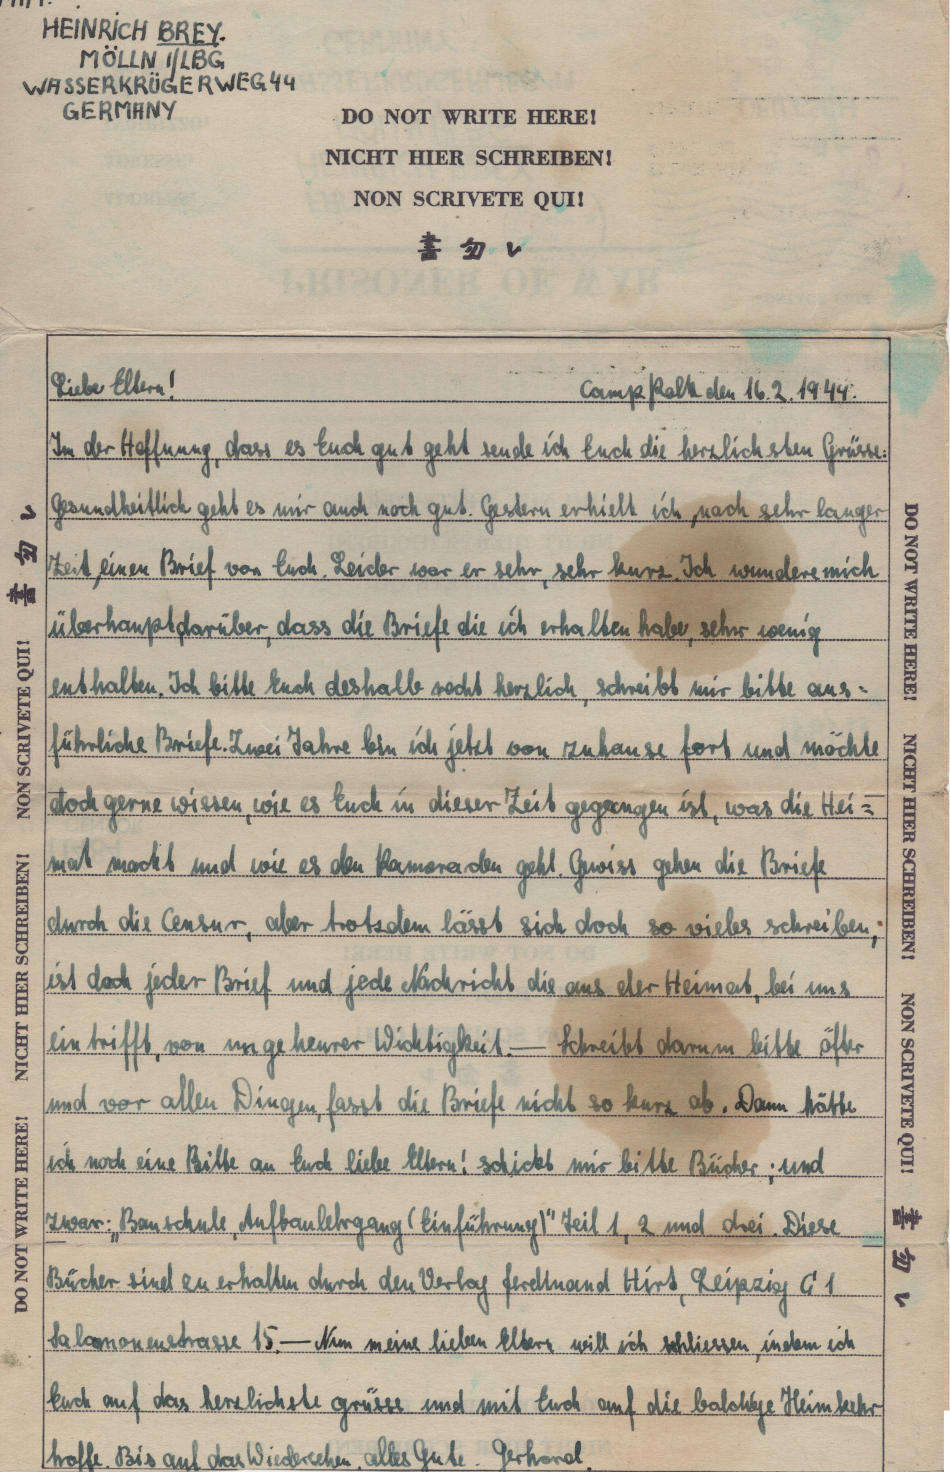 HEINRICH BREY.
MÖLLN I/LBG
WASSERKRÜGERWEG 44
GERMANY
DO NOT WRITE HERE!
NICHT HIER SCHREIBEN!
NON SCRIVETE QUI!
書勿レ
Liebe Eltern! Camp Polk den 16.2.1944.
Im der Hoffnung, dass es Euch gut geht sende ich Euch die herzlichsten Grüsse.
Gesundheitlich geht es mir auch noch gut. Gestern erhielt ich, nach sehr langer
Zeit, einen Brief von Euch. Leider war er sehr, sehr kurz. Ich wundere mich
überhaupt darüber, dass die Briefe die ich erhalten habe, sehr wenig
enthalten. Ich bitte Euch deshalb recht herzlich, schreibt mir bitte aus=
führliche Briefe. Zwei Jahre bin ich jetzt von zuhause fort und möchte
doch gerne wissen, wie es Euch in dieser Zeit gegangen ist, was die Hei=
mat macht und wie es den Kameraden geht. Gewiss gehen die Briefe
durch die Censur, aber trotzdem lässt sich doch so vieles schreiben,
ist doch jeder Brief und jede Nachricht die aus der Heimat, bei uns
eintrifft, von ungeheurer Wichtigkeit. — Schreibt darum bitte öfter
und vor allen Dingen, fasst die Briefe nicht so kurz ab. Dann hätte
ich noch eine Bitte an Euch liebe Eltern! schickt mir bitte Bücher; und
zwar: „Bauschule, Aufbaulehrgang (Einführung)" Teil 1, 2 und drei. Diese
Bücher sind zu erhalten durch den Verlag ferdinand Hirt, Leipzig C 1
Salomonenstrasse 15. — Nun meine lieben Eltern will ich schliessen, indem ich
Euch auf das herzlichste grüsse und mit Euch auf die baldige Heimkehr
hoffe. Bis auf das Wiedersehen, alles Gute. Gerhard.
DO NOT WRITE HERE! NICHT HIER SCHREIBEN! NON SCRIVETE QUI! 書勿レ
DO NOT WRITE HERE! NICHT HIER SCHREIBEN! NON SCRIVETE QUI! 書勿レ